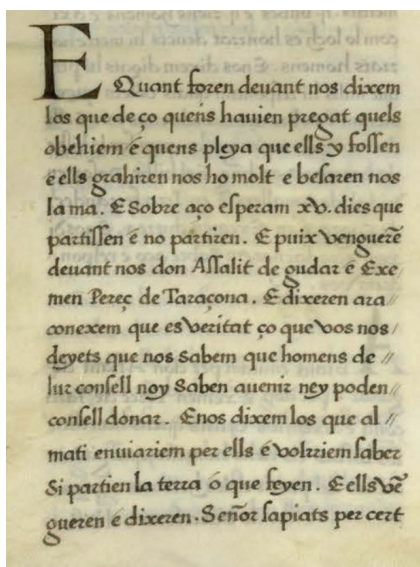 E Quant foren deuant nos dixem
los que de ço quens hauien pregat quels
obehiem é quens pleya que ells y fossen
e ells grahiren nos ho molt e besaren nos
la ma. E Sobre aço esperam xv. dies que
partissen é no partiren. E puix venguerē
deuant nos don Assalit de gudar é Exe
men Pereç de Taraçona. E dixeren ara
conexem que es veritat ço que vos nos
deyets que nos Sabem que homens de //
lur consell noy Saben auenir ney poden //
consell donar. Enos dixem los que al //
mati enuiariem per ells é volrriem saber
Si partien la terra ó que feyen. E ells vē
gueren é dixeren. Señor sapiats per cert